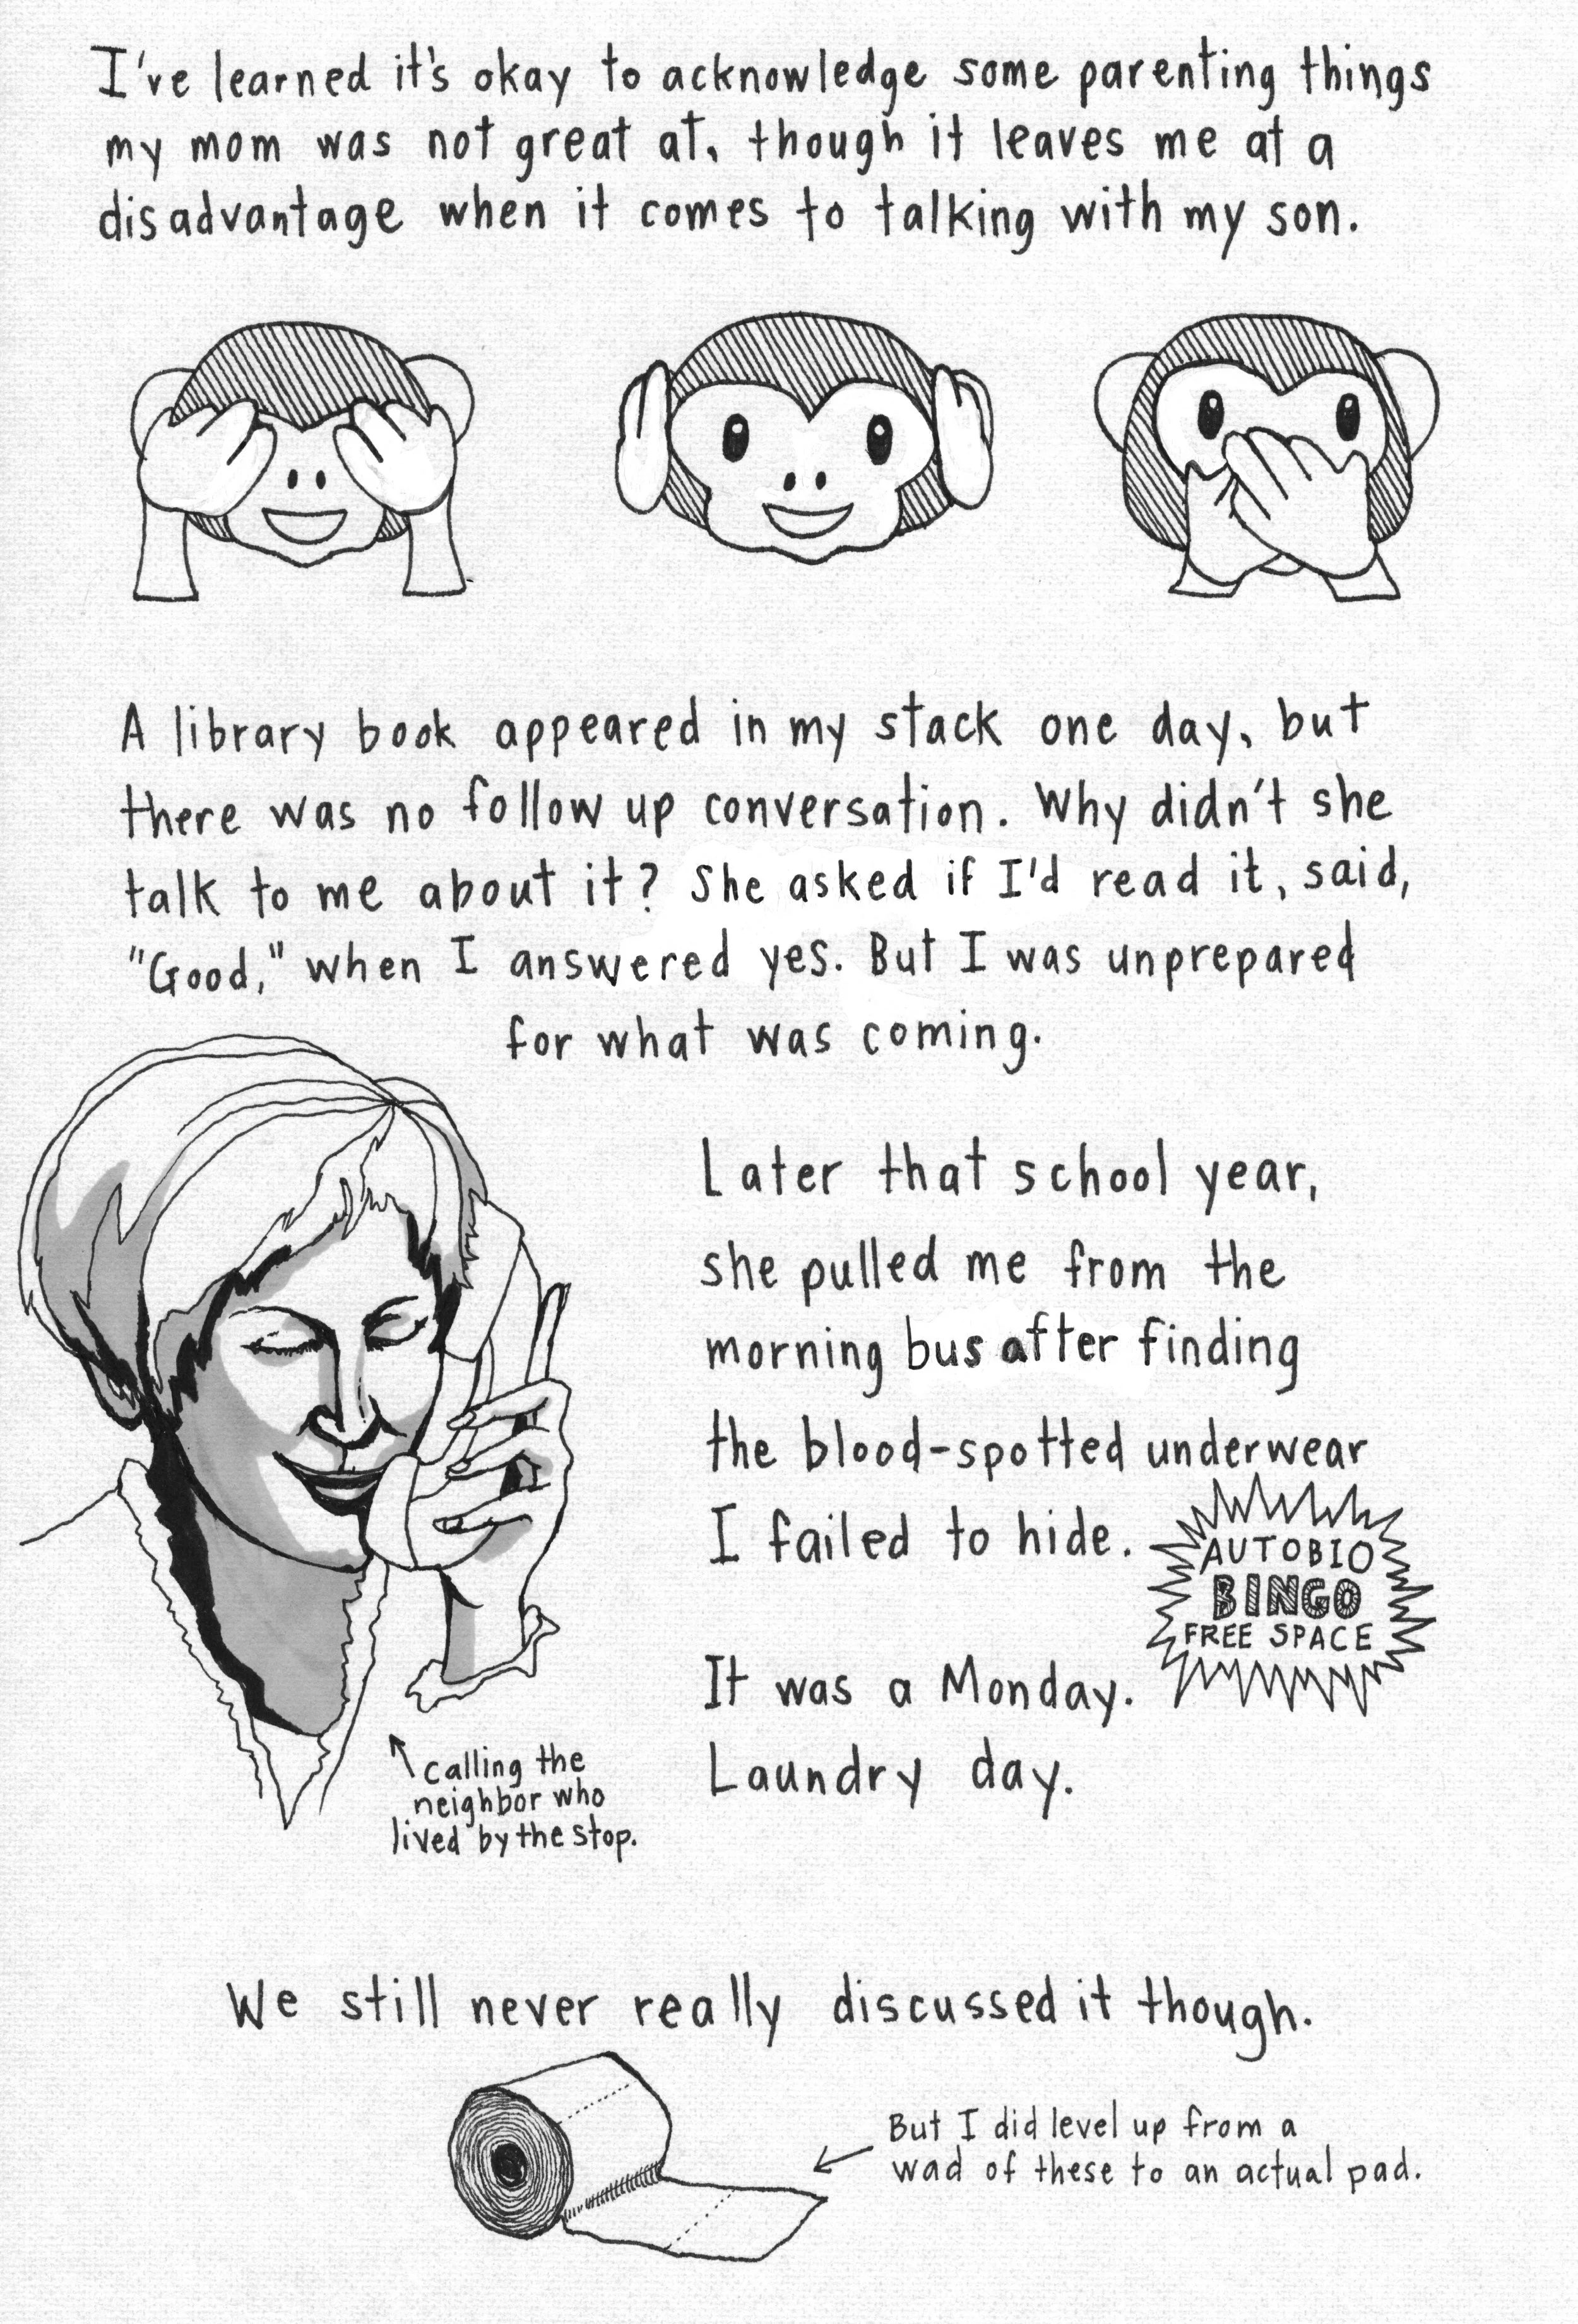 I've learned it's okay to acknowledge some parenting things
my mom was not great at, though it leaves me at a
disadvantage when it comes to talking with my son.
A library book appeared in my stack one day, but
there was no follow up conversation. Why didn't she
talk to me about it? She asked if I'd read it, said,
"Good," when I answered yes. But I was unprepared
for what was coming.
Later that school year,
she pulled me from the
morning bus after finding
the blood-spotted underwear
I failed to hide.
AUTOBIO
BINGO
FREE SPACE
It was a Monday.
Laundry day.
calling the
neighbor who
lived by the stop.
We still never really discussed it though.
But I did level up from a
wad of these to an actual pad.